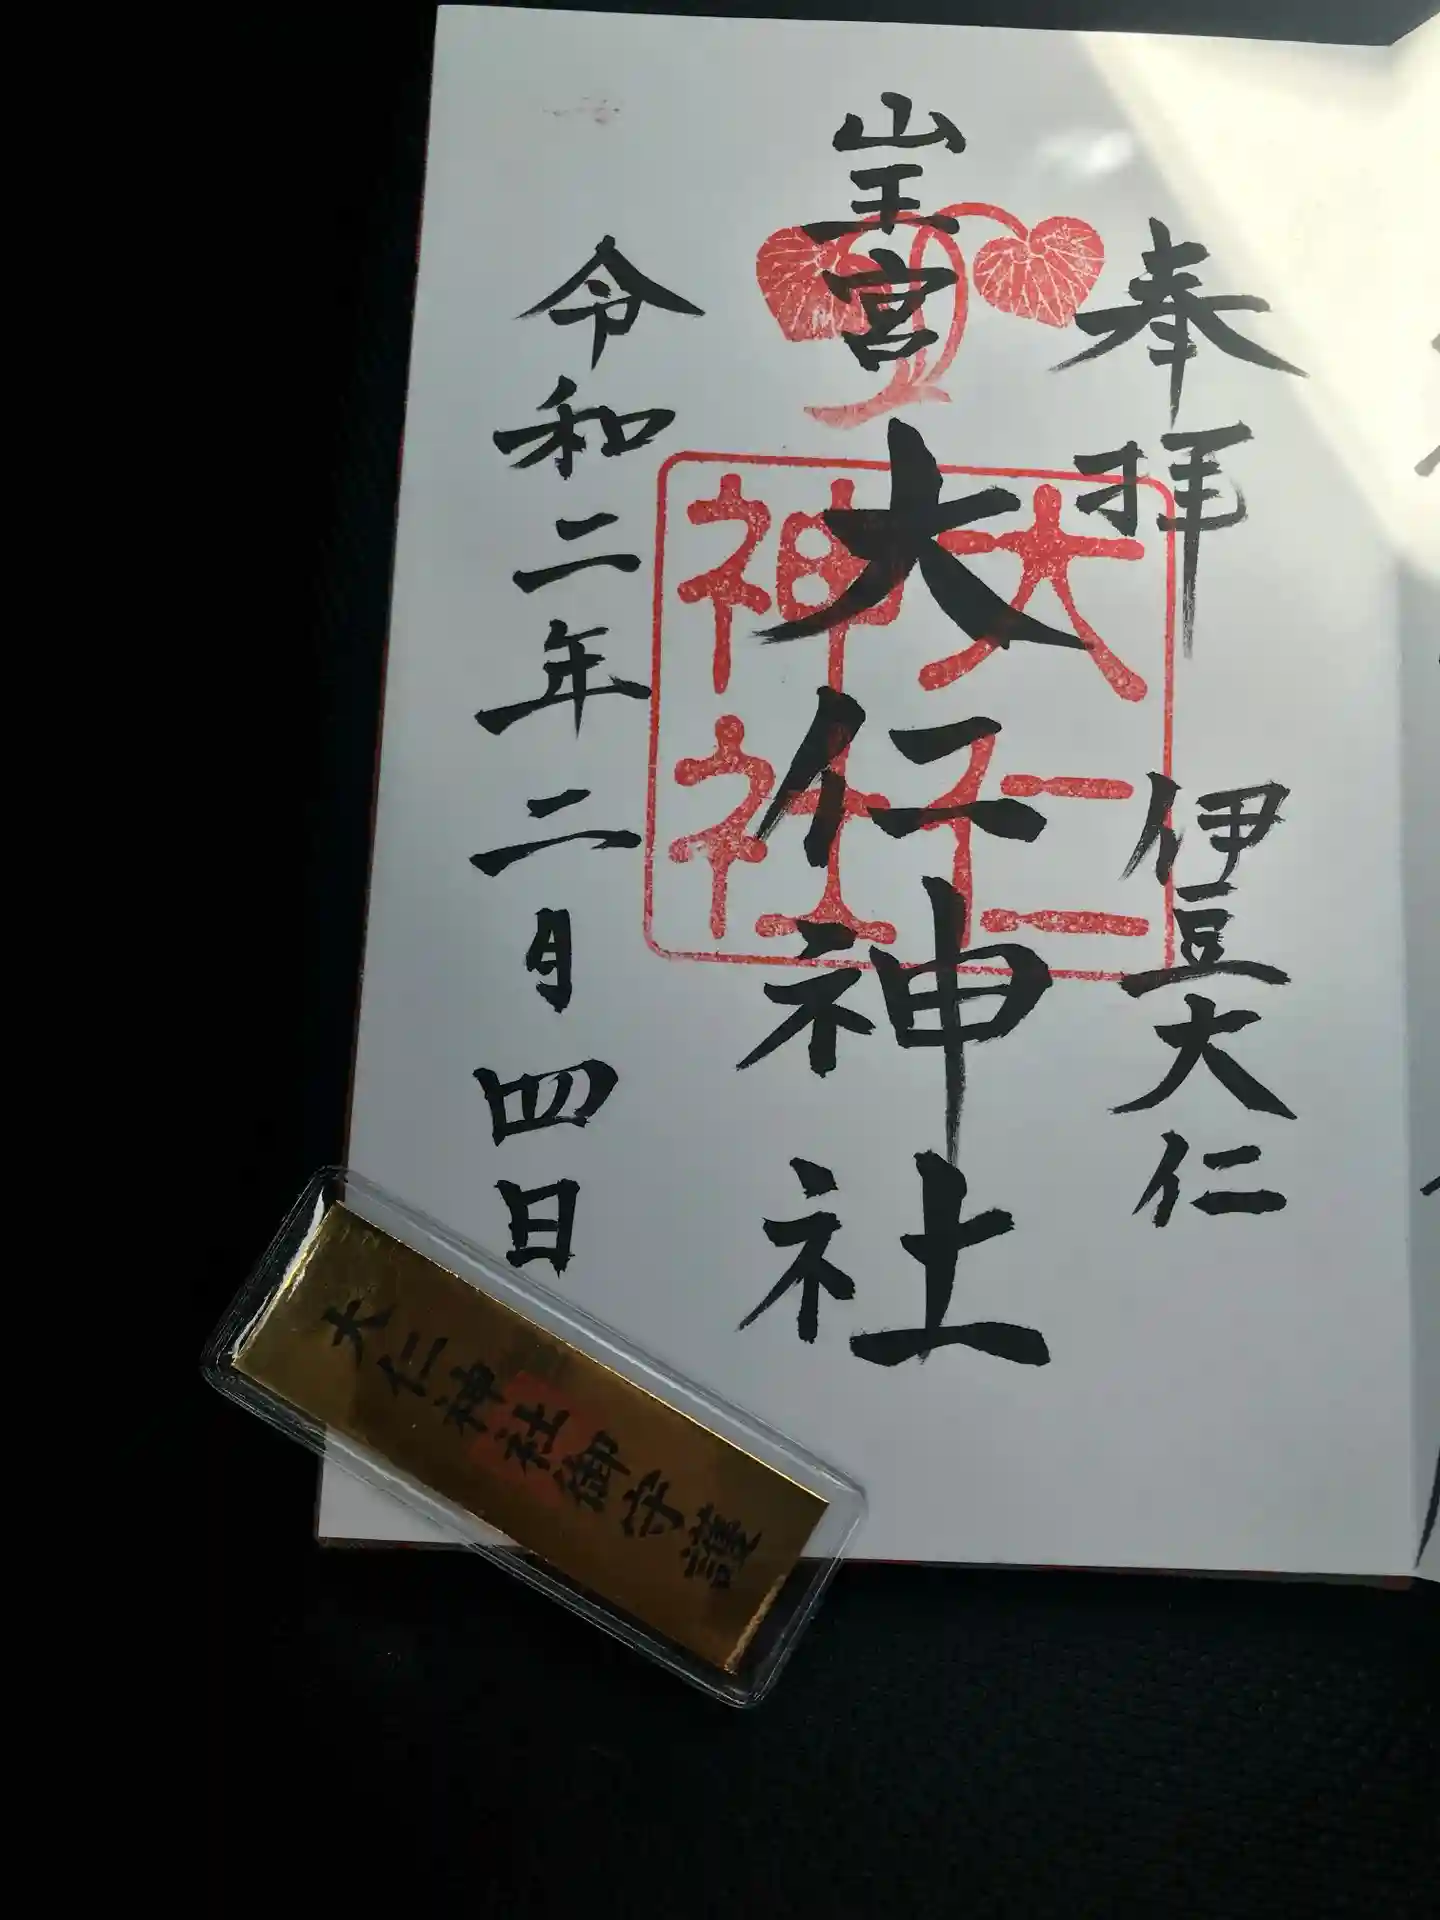 奉拝
伊豆大仁
山王宮
大仁神社
大仁
神社
令和二年二月四日
大仁神社御守護